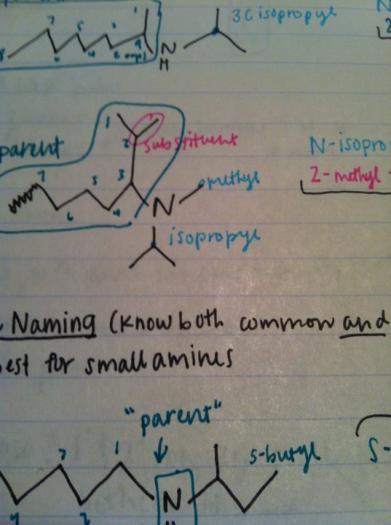 3C isopropyl
N
H
1
parent
2
substituent
N-isopro
7
5
3
methyl
2-methyl
6
4
N
isopropyl
Naming (Know both common and
est for small amines
"parent"
3
1
s-butyl
S-
N
4
2